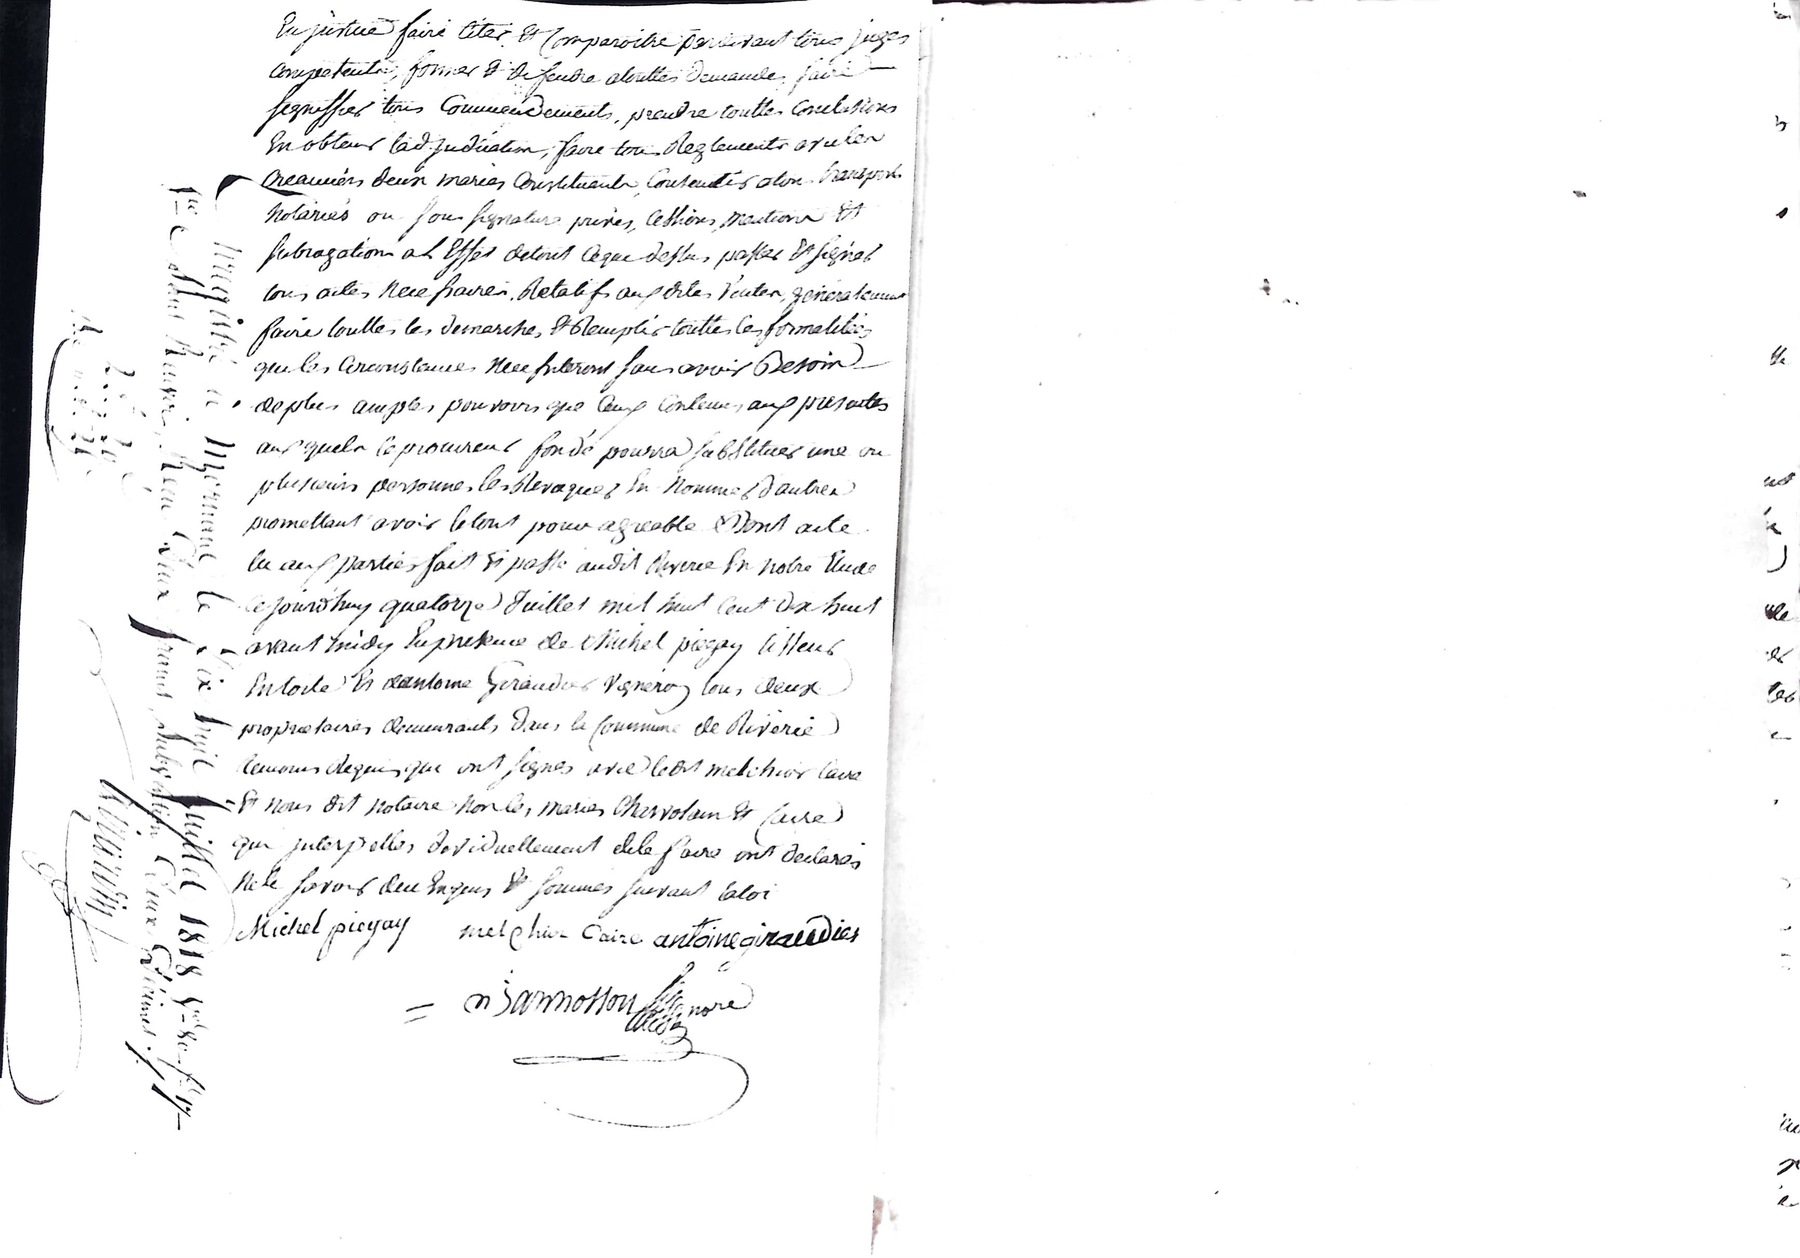 En justice faire citer Et Comparoitre pardevant tous juges
competents, former Et deffendre atouttes demandes, faire
signiffier tous Commendements, prendre touttes Conclusions
En obtenir ladjudication, faire tous Reglements avec les
Creanciers deux maries Constituants, Consentir atous transports
Notariés ou sous signature privés, Cessions, mentions Et
subrogations a L Effet detout ceque dessus passer Et signer
tous actes Necessaires, Relatifs aux dites Ventes, généralement
faire touttes les demarches, Et Remplir touttes les formalités
que les Circonstances Necessiteront sans avoir Besoin
deplus amples pouvoirs que Ceux Contenus aux presentes
auxquels le procureur fondé pourra substituer une ou
plusieurs personnes, les Revoquer En Nommer dautres
promettant avoir letout pour agreable Dont acte
lu aux parties fait Et passé audit Riverie En notre Etude
Cejourdhuy quatorze Juillet mil huit Cent dix huit
avant midy En presence de Michel piegay tisseur
En toile Et dantoine Giraudier Vigneron tous deux
proprietaires demeurants dans la Commune de Riverie
temoins requis, qui ont signes avec ledit melchior Caire
Et nous dit notaire Non les maries Charvolain Et Caire
qui interpelles Individuellement dele faire ont declarés
Nele savoir dece Enquis Et sommés suivant laloi
Michel piegay melchior Caire antoine giraudier
Jarnosson Nore
Enregistré à Mornant le dix huit Juillet 1818
reçu deux francs, subvention deux décimes